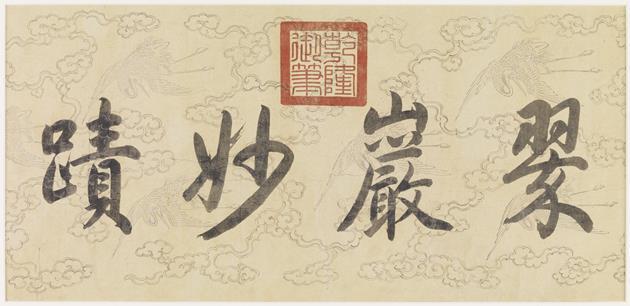 翠巖妙蹟
乾隆御筆